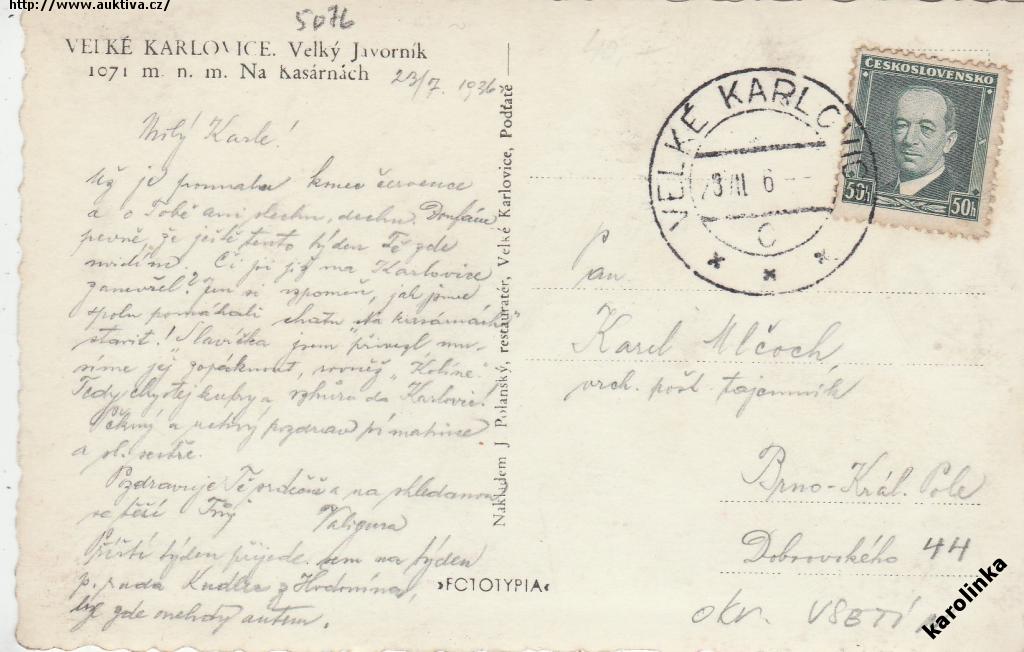 http://www.auktiva.cz/
5076
VELKÉ KARLOVICE. Velký Javorník
1071 m. n. m. Na Kasárnách
23/7. 1936
Milý Karle!
Už je pomalu konec července
a o Tobě ani slechu, dechu. Doufám
pevně, že ještě tento týden Tě zde
uvidím. Či jsi již na Karlovice
zanevřel? Jen si vzpomeň, jak jsme
spolu pomáhali chatu "Na kasárnách"
stavit! "Slavíčka" jsem přivezl mu-
síme jej zopáknout, rovněž "Kolíne"
Tedy chytej kufry a vzhůru do Karlovic!
Pěkný a uctivý pozdrav pí matince
a sl. sestře.
Pozdravuje Tě srdečně a na shledanou
se těší Tvůj Valigura
Příští týden přijede sem na týden
p. rada Kudla z Hodonína,
byl zde onehdy autem.
Nakladem J Polanský, restauratér, Velké Karlovice, Podťaté
»FOTOTYPIA«
VELKÉ KARLOVICE
6
C
ČESKOSLOVENSKO
50h 50h
Pan
Karel Mlčoch,
vrch. pošt. tajemník
Brno-Král. Pole
Dobrovského 44
OKR. VSETÍN
karolinka